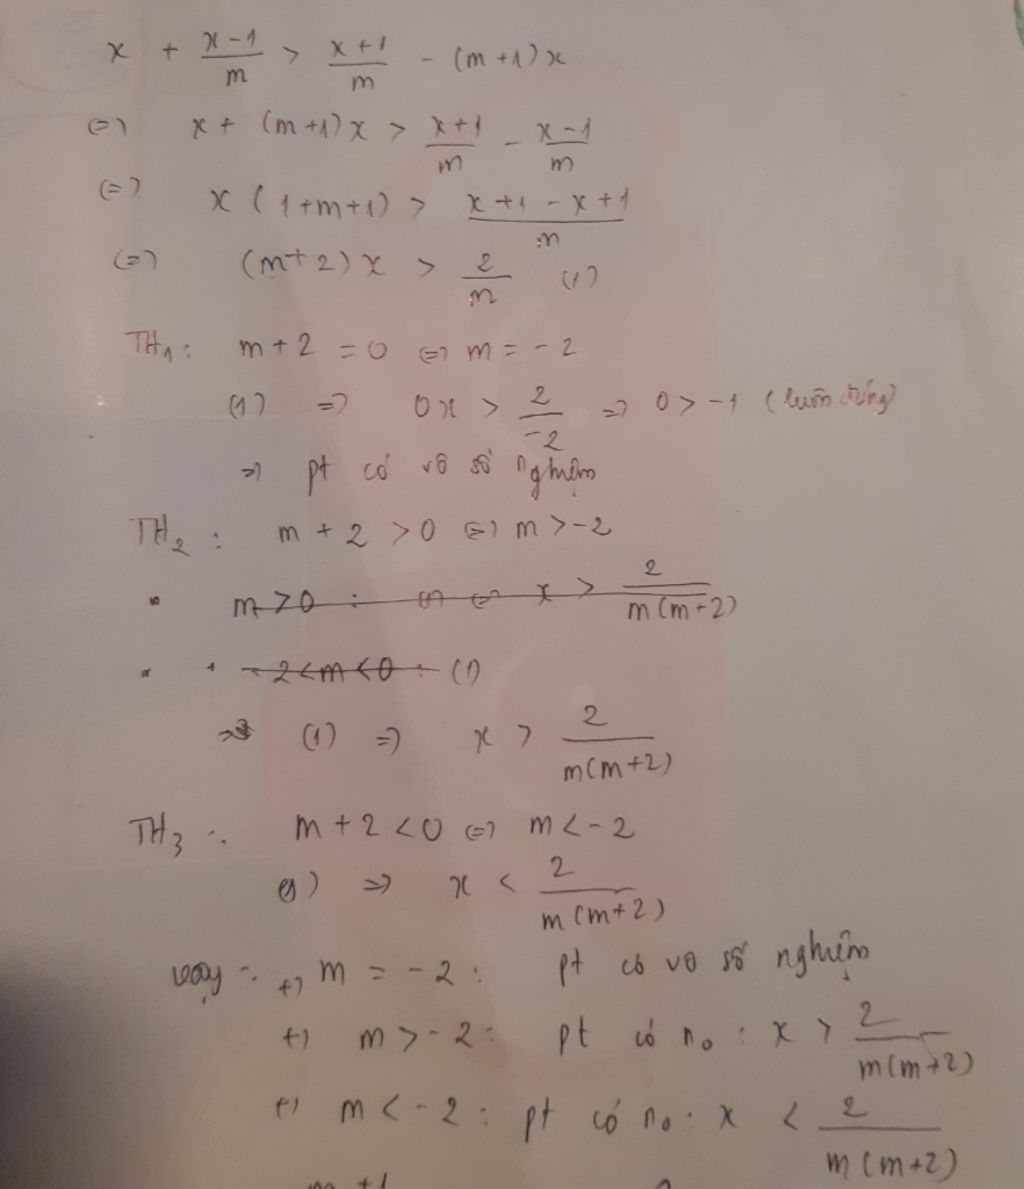 x + (x-1)/m > (x+1)/m - (m+1)x
(=) x + (m+1)x > (x+1)/m - (x-1)/m
(=) x(1+m+1) > (x+1-x+1)/m
(=) (m+2)x > 2/m (1)
TH1: m+2 = 0 (=) m = -2
(1) => 0x > 2/-2 => 0 > -1 (luôn đúng)
=> pt có vô số nghiệm
TH2: m+2 > 0 (=) m > -2
m > 0 : (1) (=) x > 2/m(m+2)
-2 < m < 0 : (1)
(1) => x > 2/m(m+2)
TH3: m+2 < 0 (=) m < -2
(1) => x < 2/m(m+2)
vậy: +) m = -2: pt có vô số nghiệm
+) m > -2: pt có no: x > 2/m(m+2)
+) m < -2: pt có no: x < 2/m(m+2)